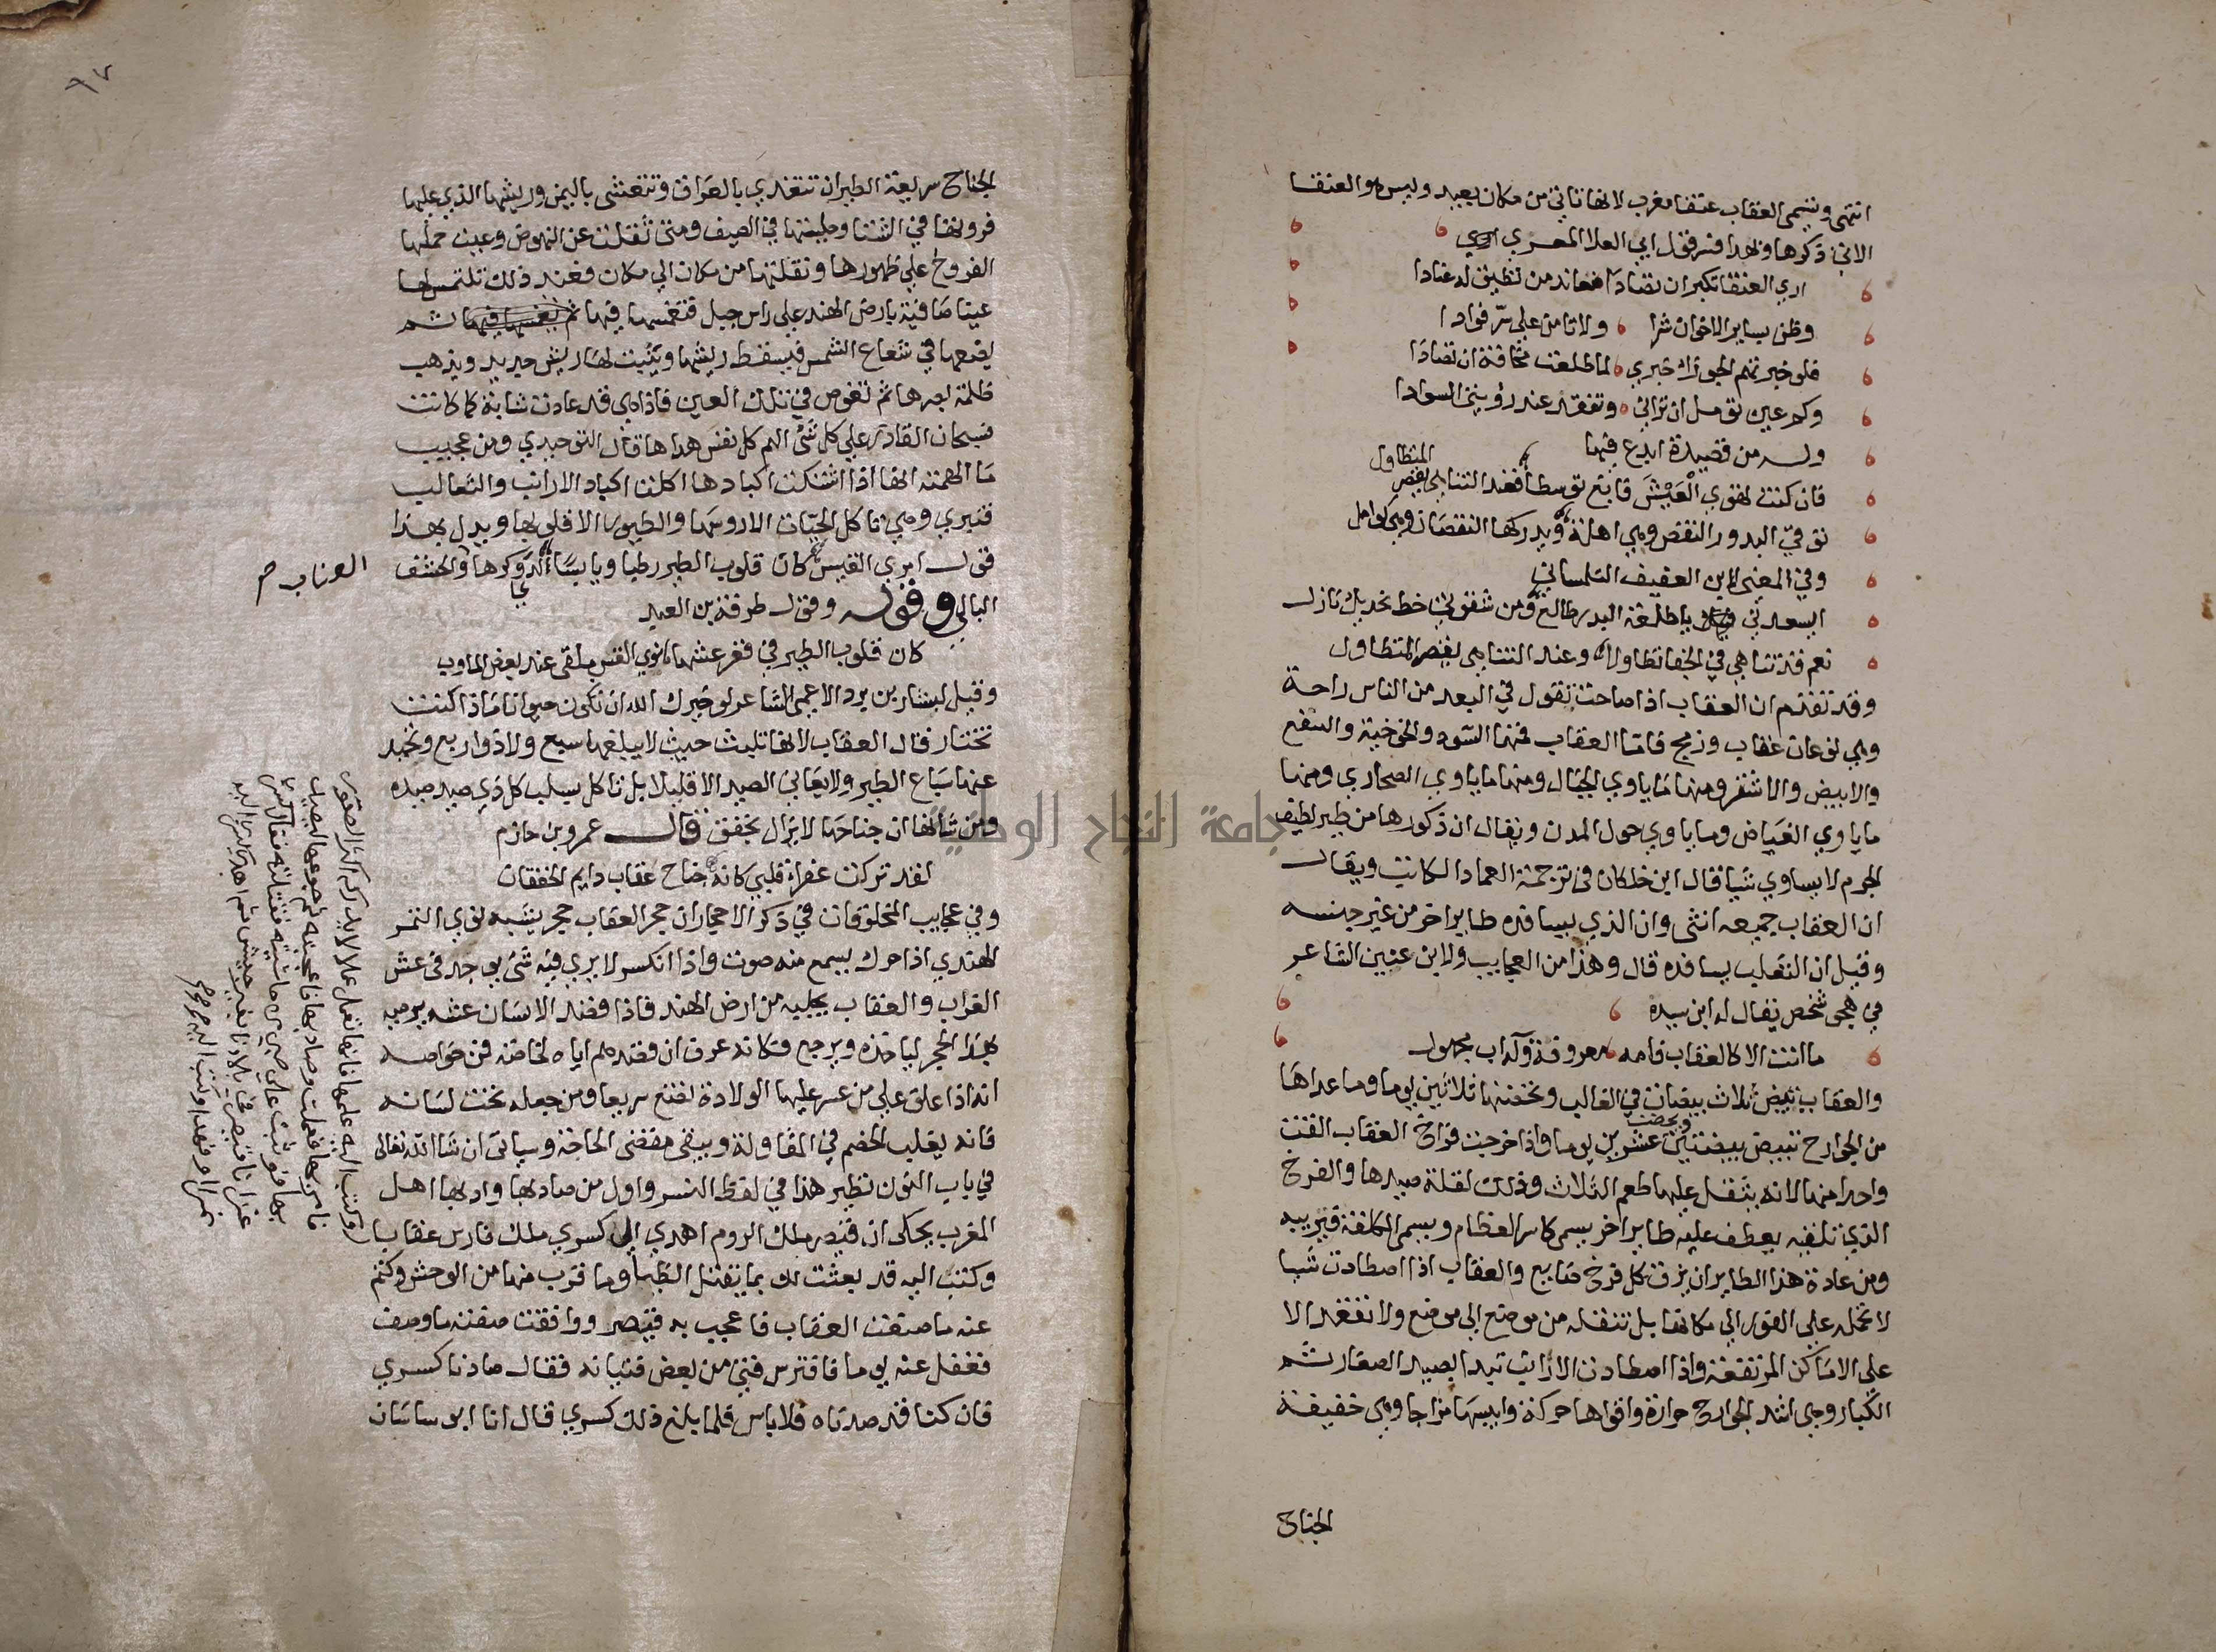 انتهى وتسمى العقاب عنقا مغرب لانها تاتي من مكان بعيد وليس هو العنقا
الاتي ذكرها وبهذا فسر قول ابي العلا المعري
اري العنقا تكبر ان تصادا فعاند من تطيق له عنادا
وظن بساير الاخوان شرا ولا تامن على سرّ فوادا
فلو خبرتهم الجوزاء خبري لما طلعت مخافة ان تصادا
وكم عين تومل ان تراني وتفقد عند رؤيتي السوادا
وله من قصيدة ابدع فيها
فان كنت تهوي الْعَيْشَ فابتغ توسطا فعند التناهي يقصر المتطاول
توقي البدور النقص وهي اهلة ويدركها النقصان وهي كوامل
وفي المعنى لابن العفيف التلمساني
ايسعدني يا طلعة البدر طالع ومن شقوتي خط بخديك نازل
نعم قد تناهى في الجفا تطاولا وعند التناهي يقصر المتطاول
وقد تقدم ان العقاب اذا صاحت تقول في البعد من الناس راحة
وهي نوعان عقاب وزمج فاما العقاب فمنها السود والخوخية والسفع
والابيض والاشقر ومنها ما ياوي الجبال ومنها ما ياوي الصحاري ومنها
ما ياوي الغياض وما ياوي حول المدن ويقال ان ذكورها من طير لطيف
الجرم لا يساوي شيا قال ابن خلكان في ترجمة العماد الكاتب ويقال
ان العقاب جميعه انثى وان الذي يسافده طاير اخر من غير جنسه
وقيل ان الثعلب يسافده قال وهذا من العجايب ولابن عنين الشاعر
في هجى شخص يقال له ابن سيده
ما انت الا كالعقاب فامه معروفة وله اب مجهول
والعقاب تبيض ثلاث بيضات في الغالب وتحضنها ثلاثين يوما وما عداها
من الجوارح تبيض بيضتين ويحضن عشرين يوما واذا خرجت فراخ العقاب القت
واحدا منها لانه يثقل عليها طعم الثلاث وذلك لقلة صبرها والفرخ
الذي تلقيه يعطف عليه طاير اخر يسمى كاسر العظام ويسمى المكلفة فيربيه
ومن عادة هذا الطاير ان يزق كل فرخ ضايع والعقاب اذا اصطادت شيا
لا تحمله على الفور الي مكانها بل تنقله من موضع الى موضع ولا تقعد الا
على الاماكن المرتفعة واذا اصطادت الارانب تبدا بصيد الصغار ثم
الكبار وهي اشد الجوارح حرارة واقواها حركة وايبسها مزاجا وهي خفيفة
الجناح
٩٧
الجناح سريعة الطيران تتغدي بالعراق وتتعشى باليمن وريشها الذي عليها
فروتها في الشتا وحليتها في الصيف ومتى ثقلت عن النهوض وعميت حملتها
الفروخ على ظهورها ونقلتها من مكان الي مكان فعند ذلك تلتمس لها
عينا صافية بارض الهند على راس جبل فتغمسها فيها ثم
يضعها في شعاع الشمس فيسقط ريشها وينبت لها ريش جديد ويذهب
ظلمة بصرها ثم تغوص في تلك العين فاذا هي قد عادت شابة كما كانت
فسبحان القادر على كل شئ الهم كل نفس هداها قال التوحيدي ومن عجيب
ما الهمته انها اذا اشتكت اكبادها اكلت اكباد الارانب والثعالب
فتبري وهي تاكل الحيات الا روسها والطيور الا قلوبها ويدل بهذا
قول امري القيس كان قلوب الطير رطبا ويابسا لدي وكرها والحشف
العناب صح
البالي وقوله وقول طرفة بن العبد
كان قلوب الطير في قعر عشها نوي القسب ملقى عند بعض المادب
وقيل لبشار بن برد الاعمى الشاعر لو خيرك الله ان تكون حيوانا ماذا كنت
تختار قال العقاب لانها تلبث حيث لا يبلغها سبع ولا ذو اربع وتحيد
عنها سباع الطير ولا يعاني الصيد الا قليلا بل تاكل يسلب كل ذي صيد صيده
ومن شانها ان جناحها لا يزال يخفق قال عمرو بن حازم
لقد تركت عفراء قلبي كانه جناح عقاب دايم الخفقان
وفي عجايب المخلوقات في ذكر الاحجار ان حجر العقاب حجر يشبه نوي التمر
الهندي اذا حرك يسمع منه صوت واذا انكسر لا يري فيه شئ يوجد في عش
الغراب والعقاب يجلبه من ارض الهند فاذا قصد الانسان عشه يرميه
بهذا الحجر لياخذه ويرجع فكانه عرف ان قصدهم اياه لخاصته فمن خواصه
انه اذا علق على من عسر عليها الولادة تضع سريعا ومن جعله تحت لسانه
فانه يغلب الخصم في المقاولة ويبقى مقضى الحاجة وسياتى ان شا الله تعالى
في باب النون نظير هذا في لفظ النسر واول من صاد بها وادبها اهل
المغرب يحكى ان قيصر ملك الروم اهدي الى كسري ملك فارس عقابا
وكتب اليه قد بعثت لك بما يقتل الظبا وما قرب منها من الوحش وكتم
عنه ما صنعت العقاب فاعجب به قيصر ووافقت صفته ما وصف
فغفل عنه يوما فافترس فتى من بعض فتيانه فقال صادنا كسري
فان كنا قد صدناه فلا باس فلما بلغ ذلك كسري قال انا ابو ساسان
وكتب اليه علمها فانها تعمل عملا لا يدركه اكثر الصقور
فامر بها فعلمت وصاد بها فاعجبته ثم جوعها ليصيد
بها فوثبت على صبي من حاشيته فقتلته فقال كسرى
غزانا قيصر في بلادنا بغير جيش ثم اهدى كسرى اليه
نمرا او فهدا وكتب اليه
جامعة النجاح الوطنية